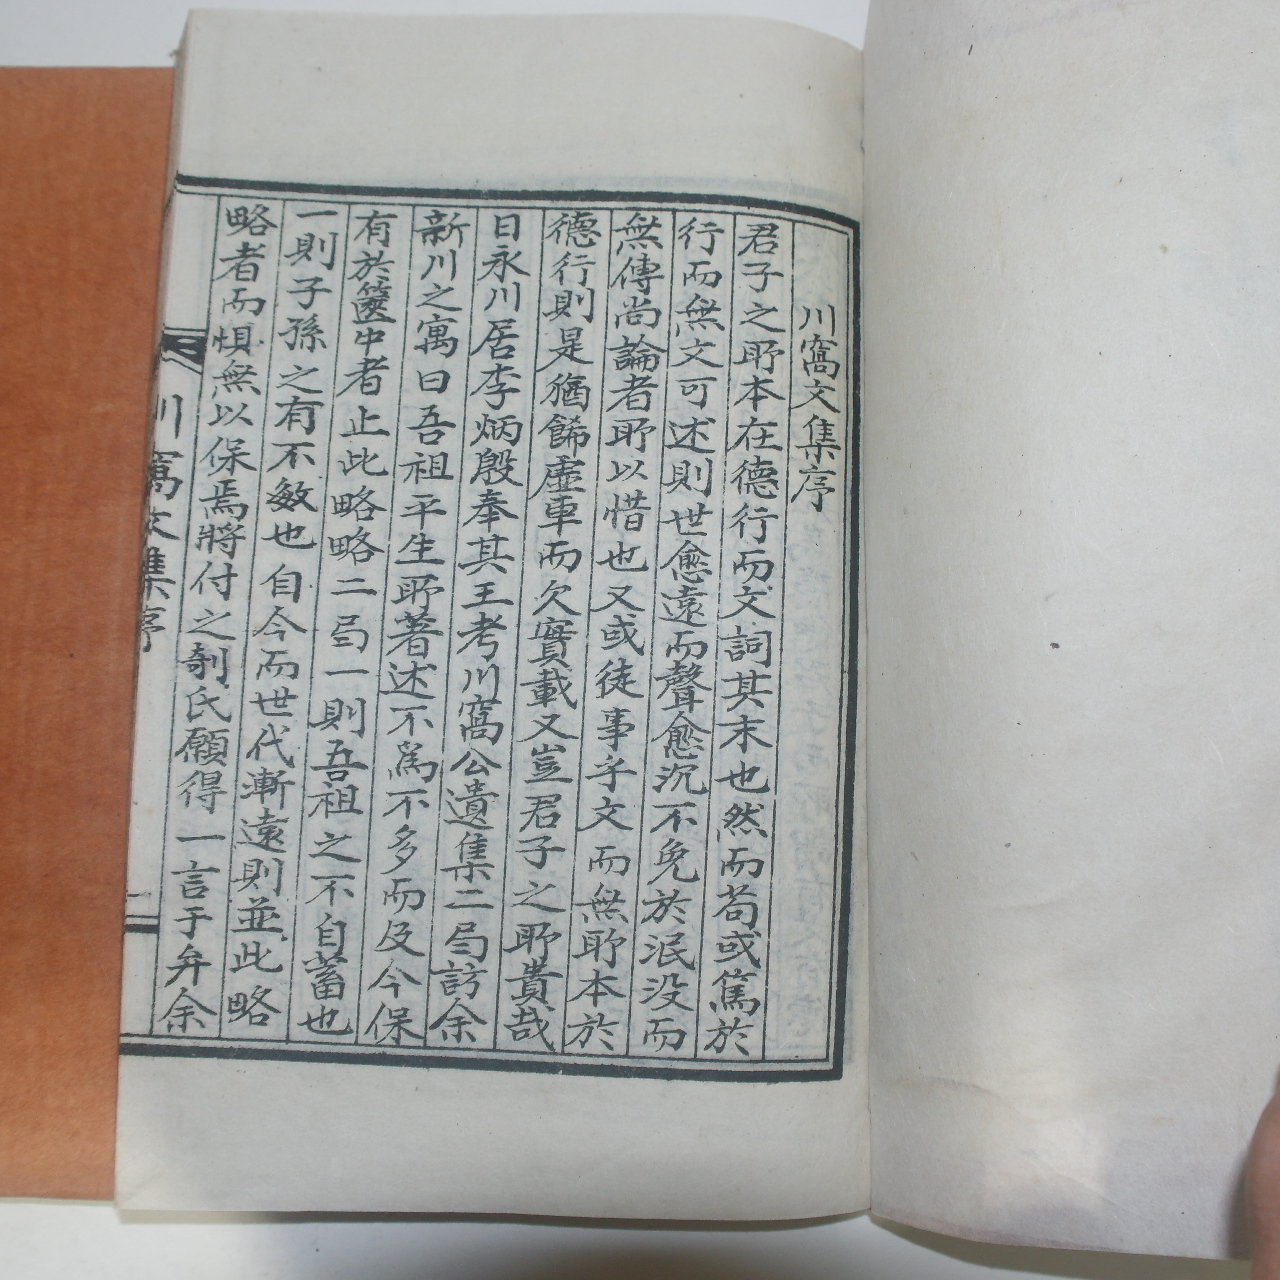 川窩文集序
君子之所本在德行而文詞其末也然而苟或篤於
行而無文可述則世愈遠而聲愈沉不免於泯没而
無傳尚論者所以惜也又或徒事乎文而無所本於
德行則是猶餙虛車而欠實載又豈君子之所貴哉
日永川居李炳殷奉其王考川窩公遺集二局訪余
新川之寓曰吾祖平生所著述不爲不多而及今保
有於篋中者止此略略二局一則吾祖之不自蓄也
一則子孫之有不敏也自今而世代漸遠則並此略
略者而惧無以保焉將付之剞氏願得一言于弁余
川窩文集序
一